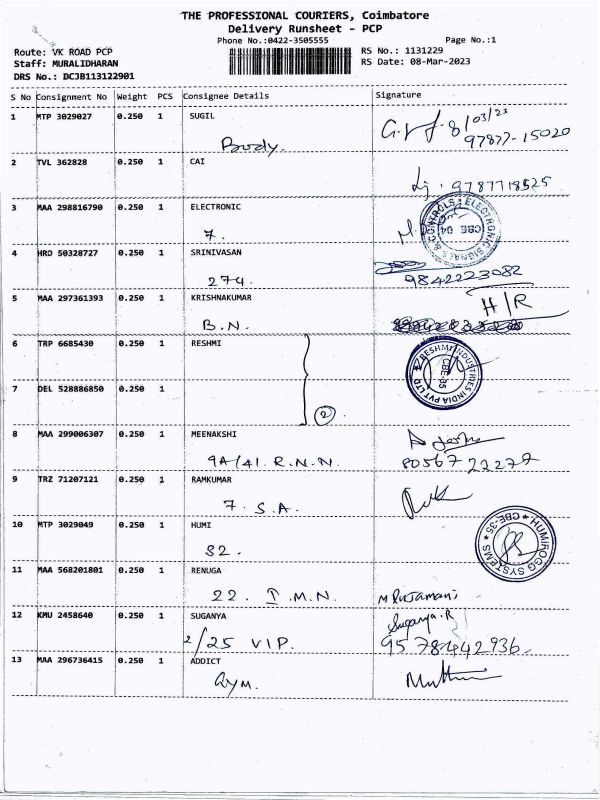 THE PROFESSIONAL COURIERS, Coimbatore
Delivery Runsheet - PCP
Phone No.:0422-3505555
Page No.:1
Route: VK ROAD PCP
RS No.: 1131229
Staff: MURALIDHARAN
RS Date: 08-Mar-2023
DRS No.: DCJB113122901
S No Consignment No Weight PCS Consignee Details Signature
1 MTP 3029027 0.250 1 SUGIL
8/03/23
Body.
97877-15020
2 TVL 362828 0.250 1 CAI
9787718525
3 MAA 298816790 0.250 1 ELECTRONIC
7.
ELECTRONIC SIGNALS & CONTROLS
CBE 04
4 HRD 50328727 0.250 1 SRINIVASAN
274.
9842223082
5 MAA 297361393 0.250 1 KRISHNAKUMAR
H/R
B.N.
6 TRP 6685430 0.250 1 RESHMI
RESHMI INDUSTRIES INDIA PVT LTD
CBE-35
7 DEL 528886850 0.250 1
2
8 MAA 299006307 0.250 1 MEENAKSHI
9A/41. R.N.N.
80567 22277
9 TRZ 71207121 0.250 1 RAMKUMAR
7. S.A.
10 MTP 3029049 0.250 1 HUMI
32.
HUMIROGG SYSTEMS
CBE-35
11 MAA 568201801 0.250 1 RENUGA
22. T.M.N.
12 KMU 2458640 0.250 1 SUGANYA
Suganya.R
2/25 VIP.
9578442936
13 MAA 296736415 0.250 1 ADDICT
Gym.